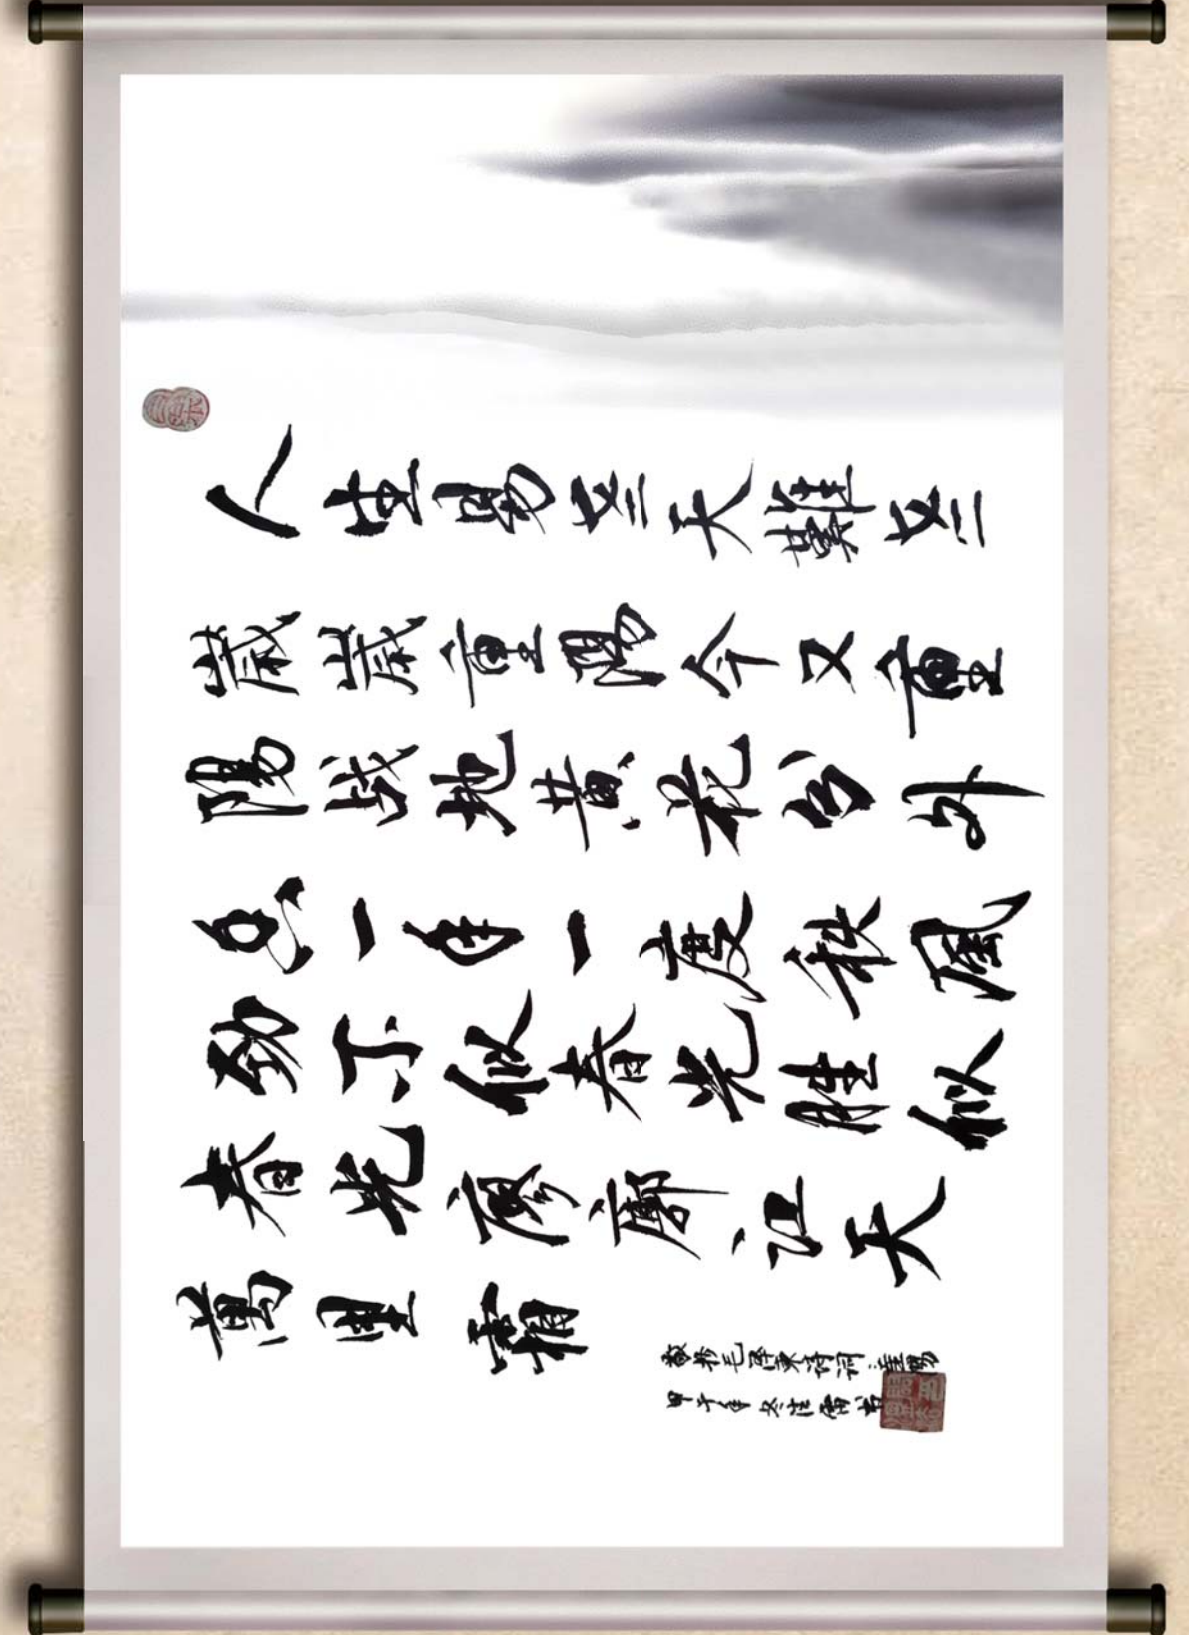 人生易老天難老
歲歲重陽今又重
陽战地黄花分外
香一年一度秋風
劲不似春光胜似
春光廖廓江天
萬里霜
敬抄毛澤東诗词重陽
甲子年冬